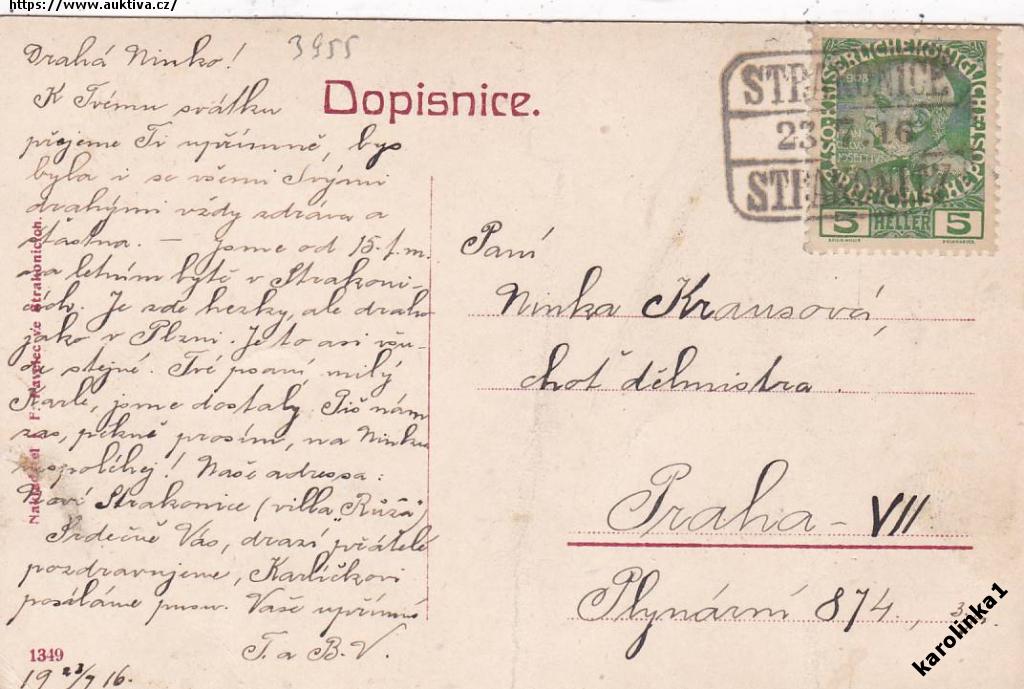 https://www.auktiva.cz/
3955
Drahá Ninko!
K Tvému svátku
přejeme Ti upřímně, bys
byla i se všemi Tvými
drahými vždy zdráva a
šťastna. – Jsme od 15. t. m.
na letním bytě v Strakoni-
cích. Je zde hezky, ale draho
jako v Plzni. Je to asi všu-
de stejné. Tvé psaní, milý
Karle, jsme dostaly. Piš nám
zas, pěkně prosím, na Ninku
nespoléhej! Naše adressa:
Nové Strakonice (villa „Růžá“)
Srdečně Vás, drazí přátelé
pozdravujeme, Karlíčkovi
posíláme pusu. Vaše upřímné
T. a B. V.
1349
19 23/7 16.
Dopisnice.
STRAKONICE
23.7.16
STRAKONITZ
KAISERLICHE KÖNIGLICHE
1908
5 HELLER 5
Paní
Ninka Krausová,
choť dělmistra.
Praha – VII
Plynární 874.
3.
karolinka1